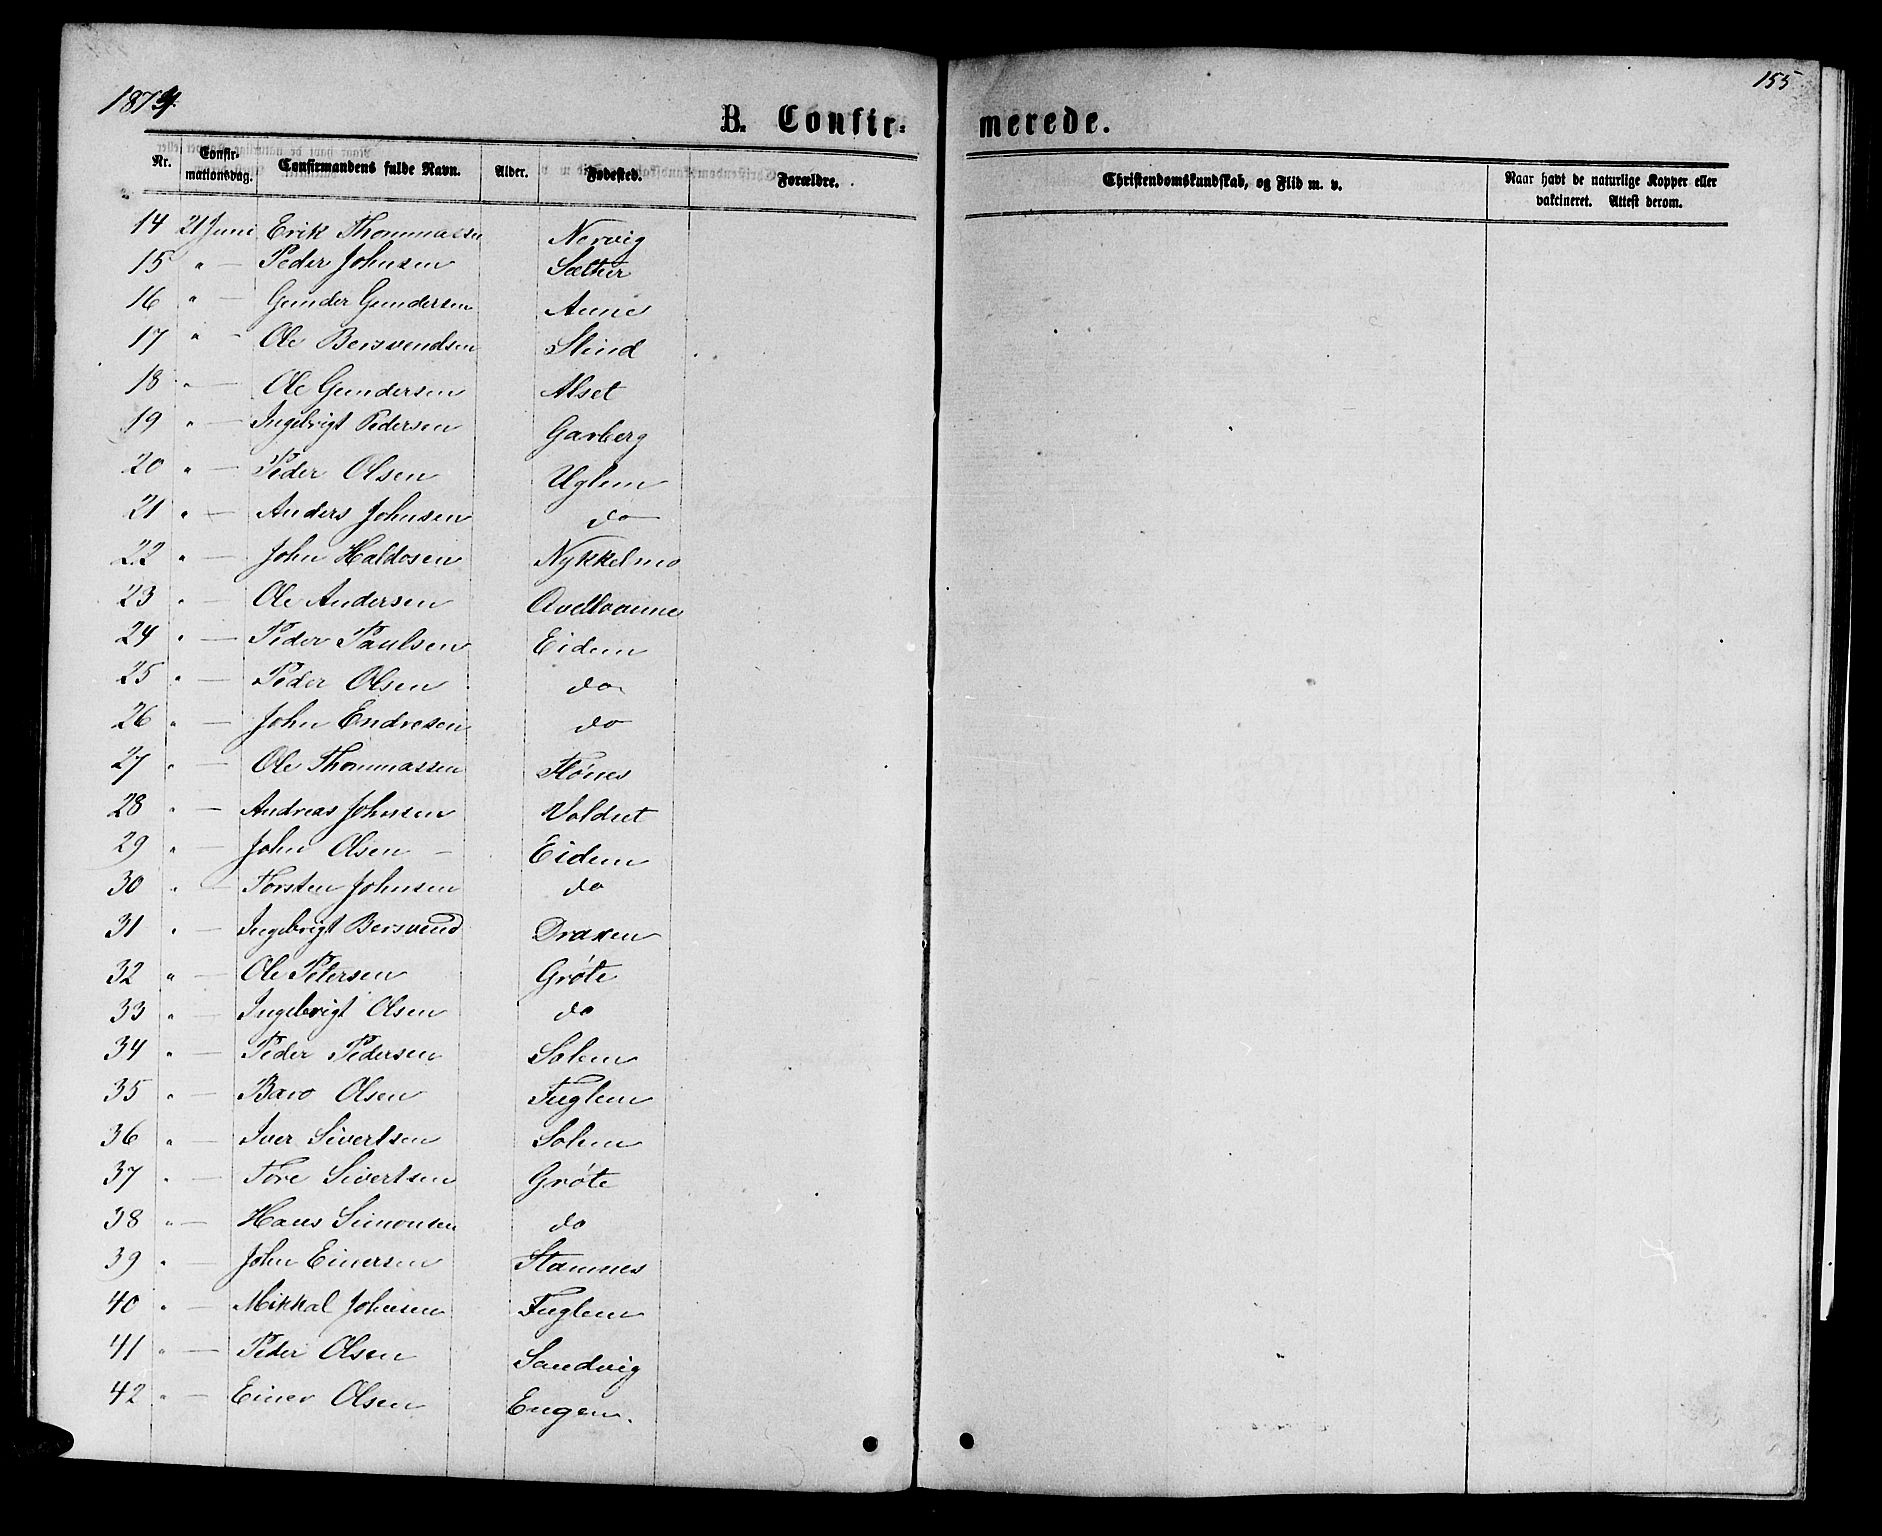 1874.
155
B. Confir-merede.
Nr. Confir-mationsdag. Confirmandens fulde Navn. Alder. Fødested. Forældre. Christendomskundskab, og Flid m. v. Naar havt de naturlige Kopper eller vakcineret. Attest derom.
14 21 Juni Erik Thommassen Norvig
15 " — Peder Johnsen Sæther
16 " — Gunder Gundersen Aune
17 " — Ole Bersvendsen Slind
18 " — Ole Gundersen Alset
19 " — Ingebrigt Pedersen Garberg
20 " — Peder Olsen Uglem
21 " — Anders Johnsen do
22 " — John Haldosen Nykkelmo
23 " — Ole Andersen
24 " — Peder Paulsen Eidem
25 " — Peder Olsen do
26 " — John Endresen do
27 " — Ole Thommassen Flönes
28 " — Andreas Johnsen Voldset
29 " — John Olsen — Eidem
30 " — Torsten Johnsen do
31 " — Ingebrigt Bersvend Draxen
32 " — Ole Petersen Gröte
33 " — Ingebrigt Olsen do
34 " — Peder Pedersen Solem
35 " — Baro Olsen Fuglem
36 " — Iver Sivertsen Solem
37 " — Tore Sivertsen Gröte
38 " — Hans Simonsen do
39 " — John Einersen Stamnes
40 " — Mikkal Johnsen Fuglem
41 " — Peder Olsen Sandvig
42 " — Einer Olsen Engen.